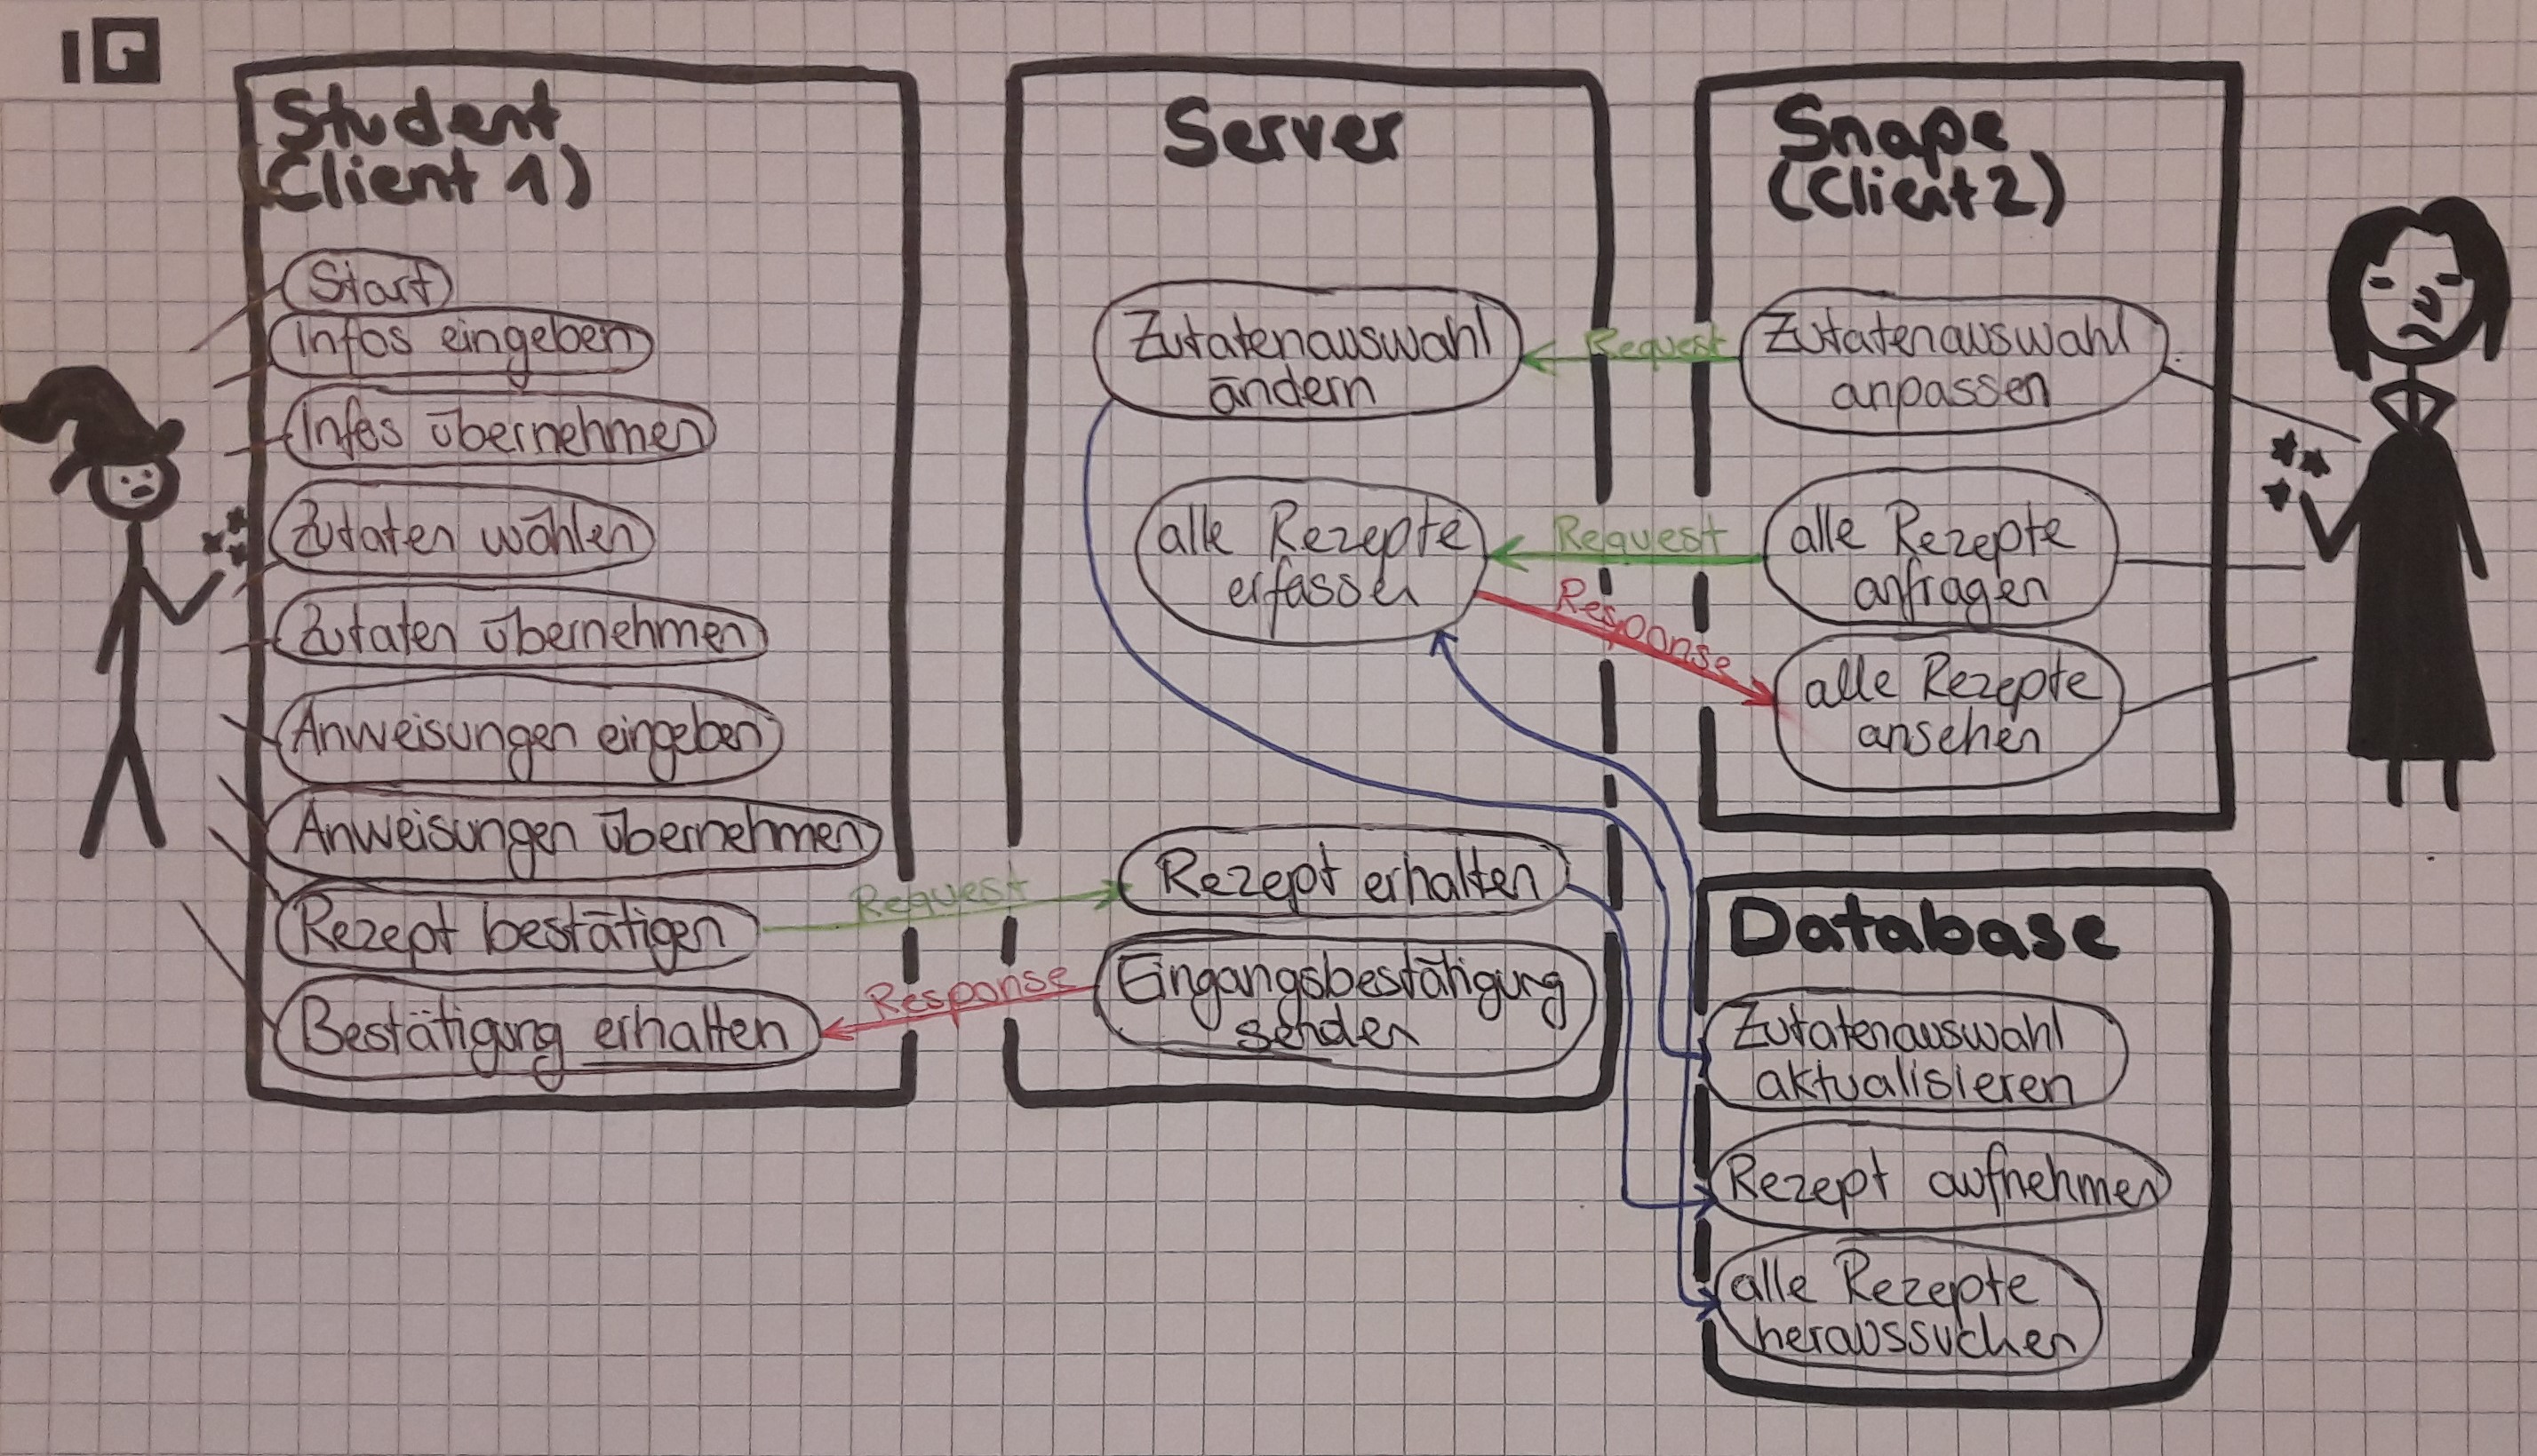 Student
(Client 1)
Start
Infos eingeben
Infos übernehmen
Zutaten wählen
Zutaten übernehmen
Anweisungen eingeben
Anweisungen übernehmen
Rezept bestätigen
Bestätigung erhalten
Request
Response
Server
Zutatenauswahl
ändern
alle Rezepte
erfassen
Rezept erhalten
Eingangsbestätigung
senden
Request
Request
Response
Snape
(Client 2)
Zutatenauswahl
anpassen
alle Rezepte
anfragen
alle Rezepte
ansehen
Database
Zutatenauswahl
aktualisieren
Rezept aufnehmen
alle Rezepte
heraussuchen